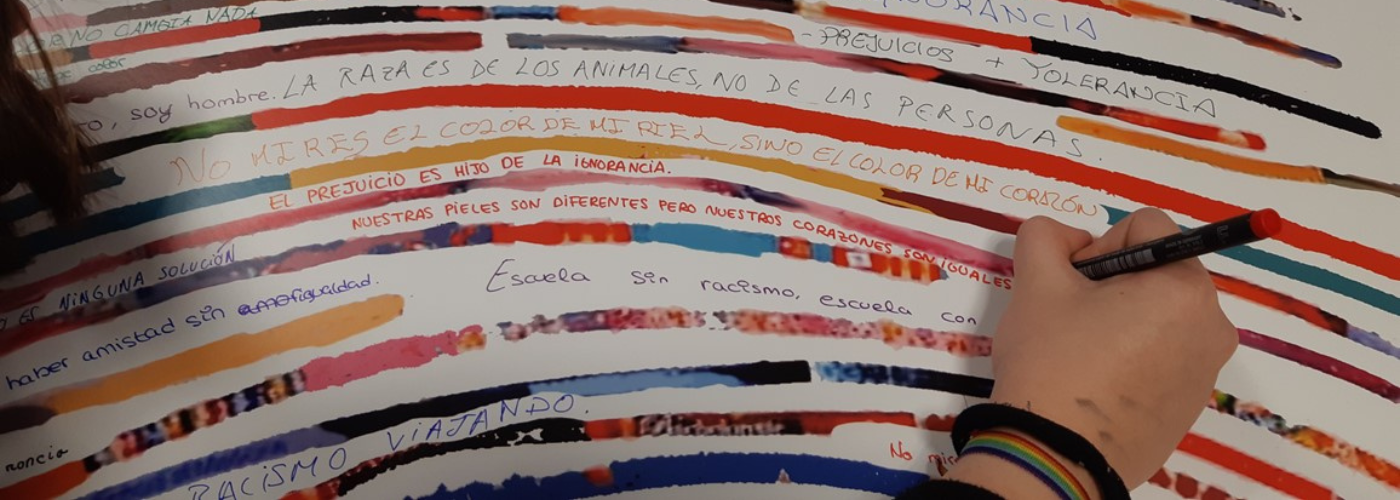 NO CAMBIA NADA
IGNORANCIA
- PREJUICIOS + TOLERANCIA
color
, soy hombre.
LA RAZA ES DE LOS ANIMALES, NO DE LAS PERSONAS.
NO MIRES EL COLOR DE MI PIEL, SINO EL COLOR DE MI CORAZÓN
EL PREJUICIO ES HIJO DE LA IGNORANCIA.
NUESTRAS PIELES SON DIFERENTES PERO NUESTROS CORAZONES SON IGUALES
ES NINGUNA SOLUCIÓN
Escuela sin racismo, escuela con
haber amistad sin igualdad.
RACISMO VIAJANDO.
No